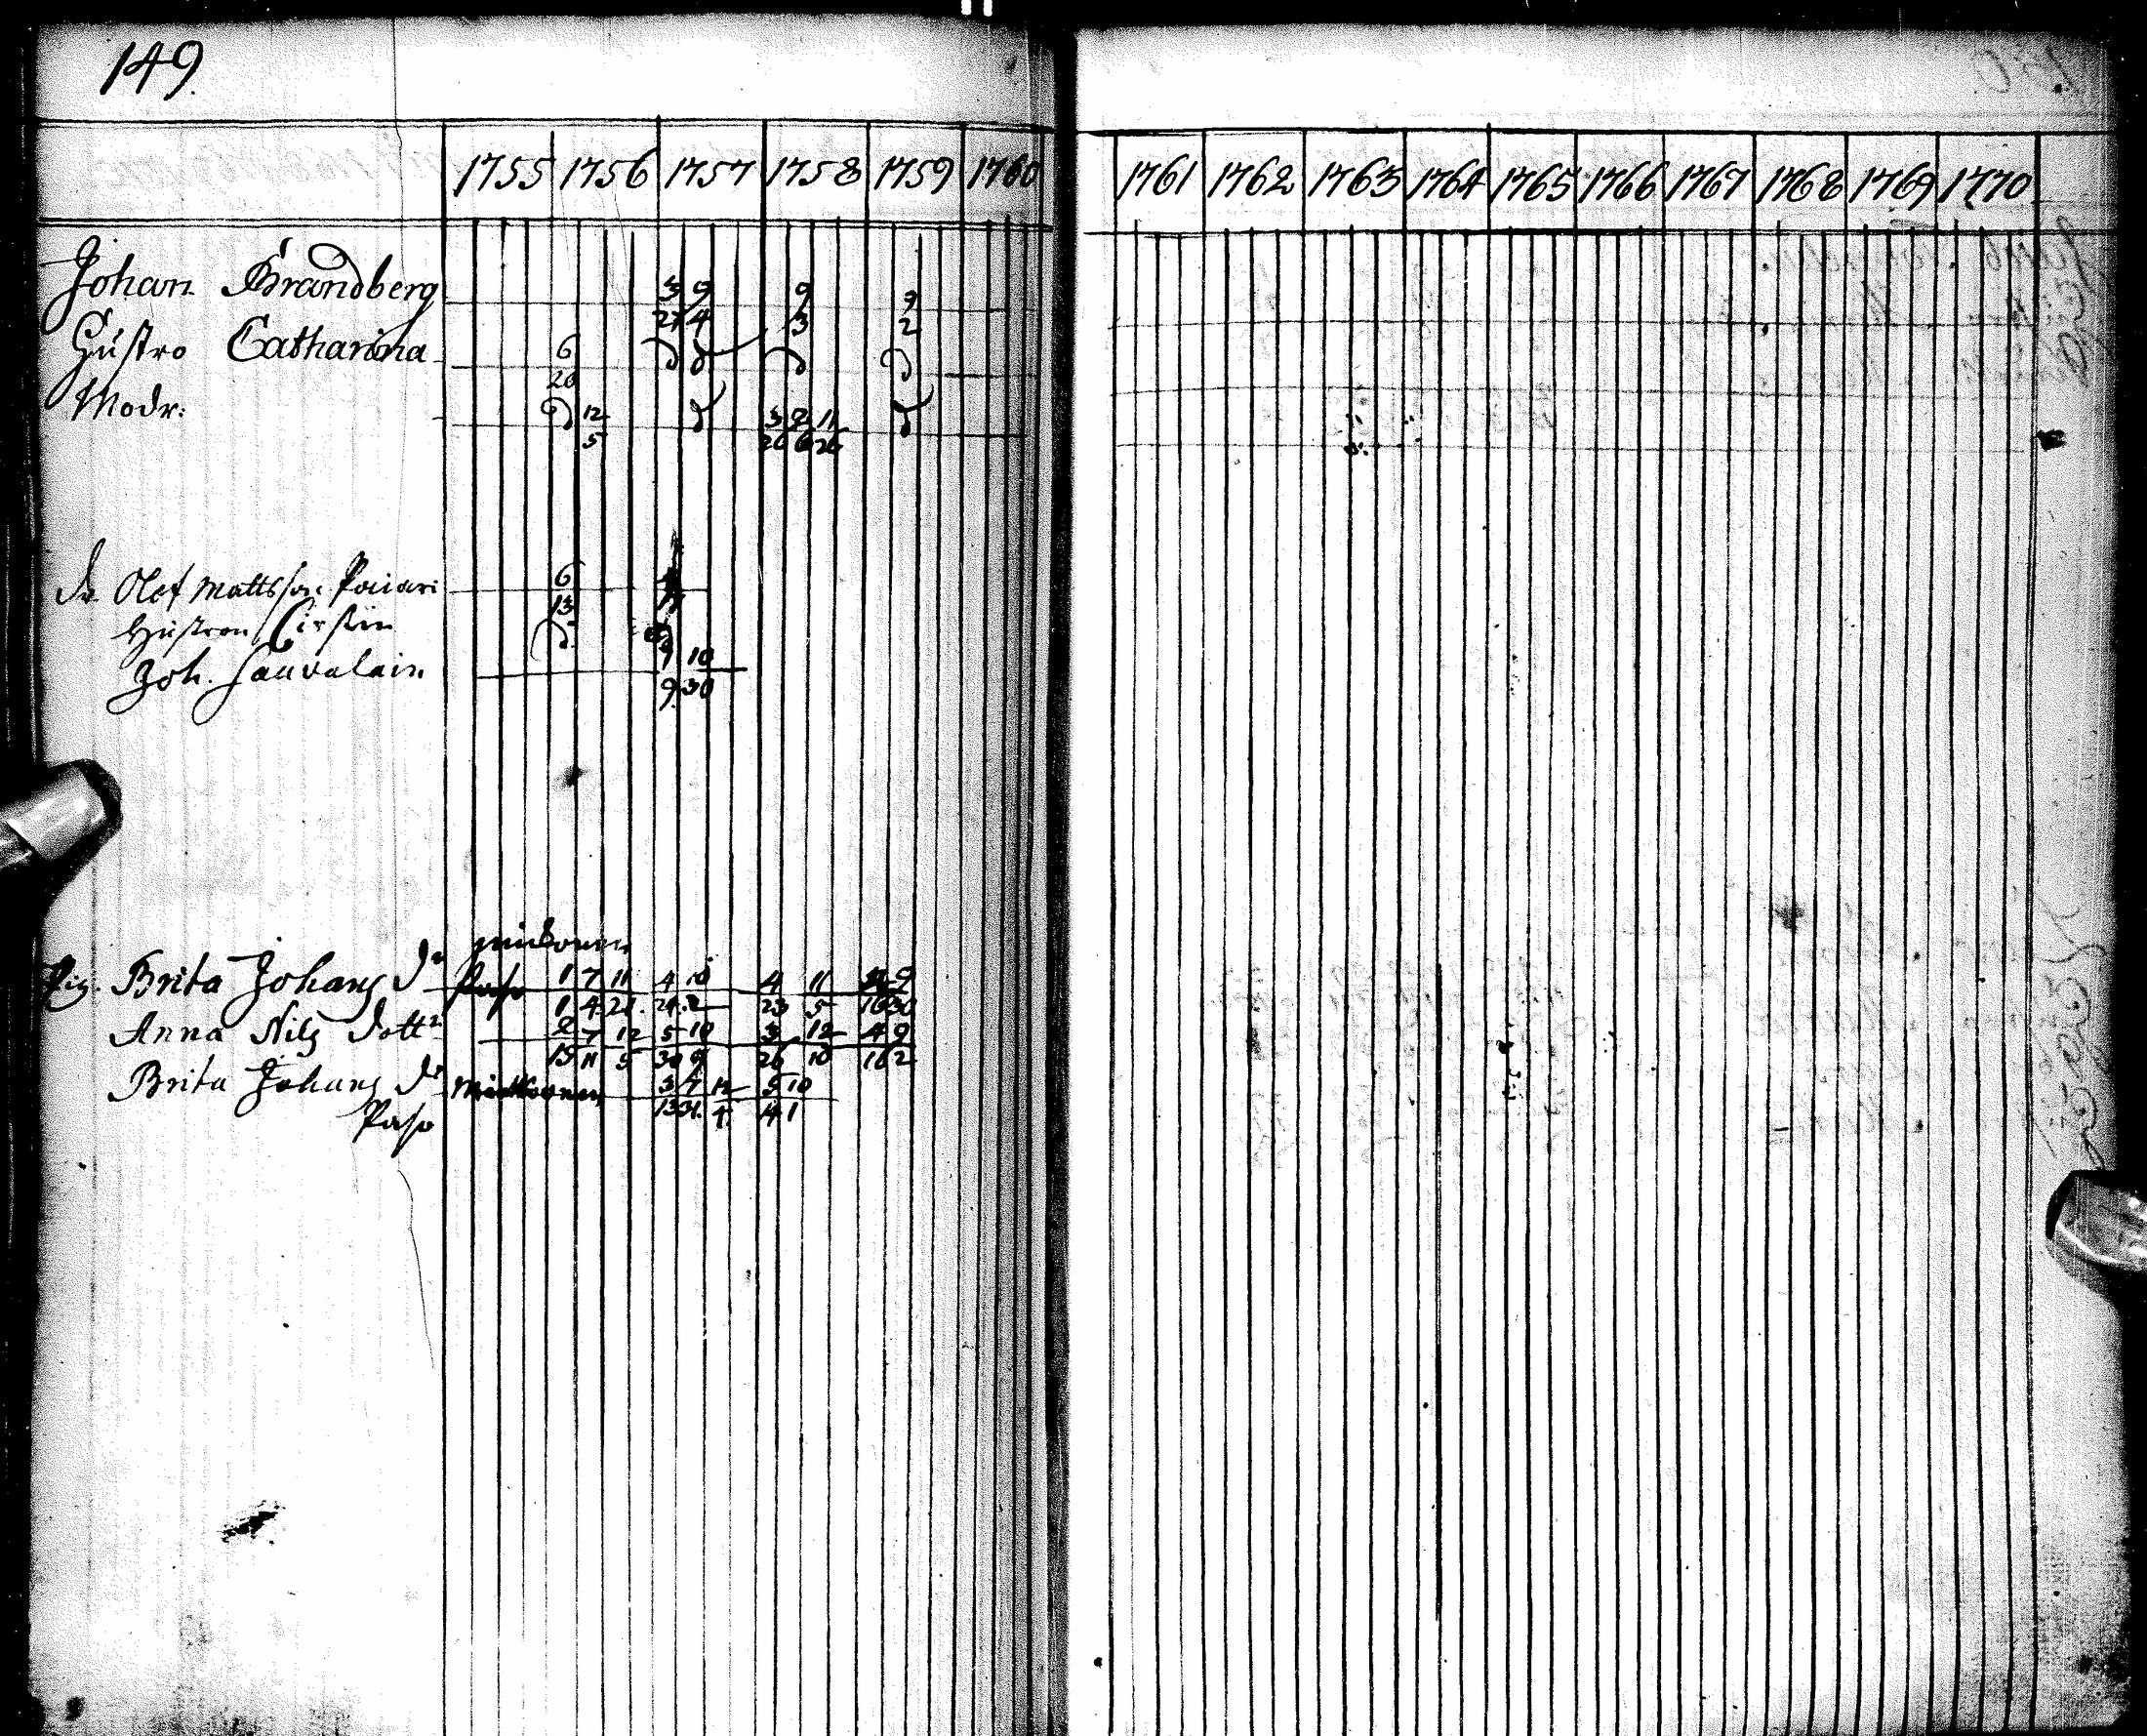 149.
1755 1756 1757 1758 1759 1760 1761 1762 1763 1764 1765 1766 1767 1768 1769 1770
Johan Brandberg 3 9 9 9
27 4 3 2
Hustro Catharina 6
20
Modr: 12 3 8 11
5 26 6 26
dr Olof Mattsson 6
13
Hustron Cirstin
Joh. 1 10
9 30
Pig. Brita Johans dr Paso 1 7 11 4 10 4 11 9
1 4 21. 24 2 23 5 16 30
Anna Nils dottr 2 7 12 5 10 3 12 4 9
15 11 5 30 9 26 10 16 2
Brita Johans dr 3 7 12 5 10
13 31. 4 14 1
Paso